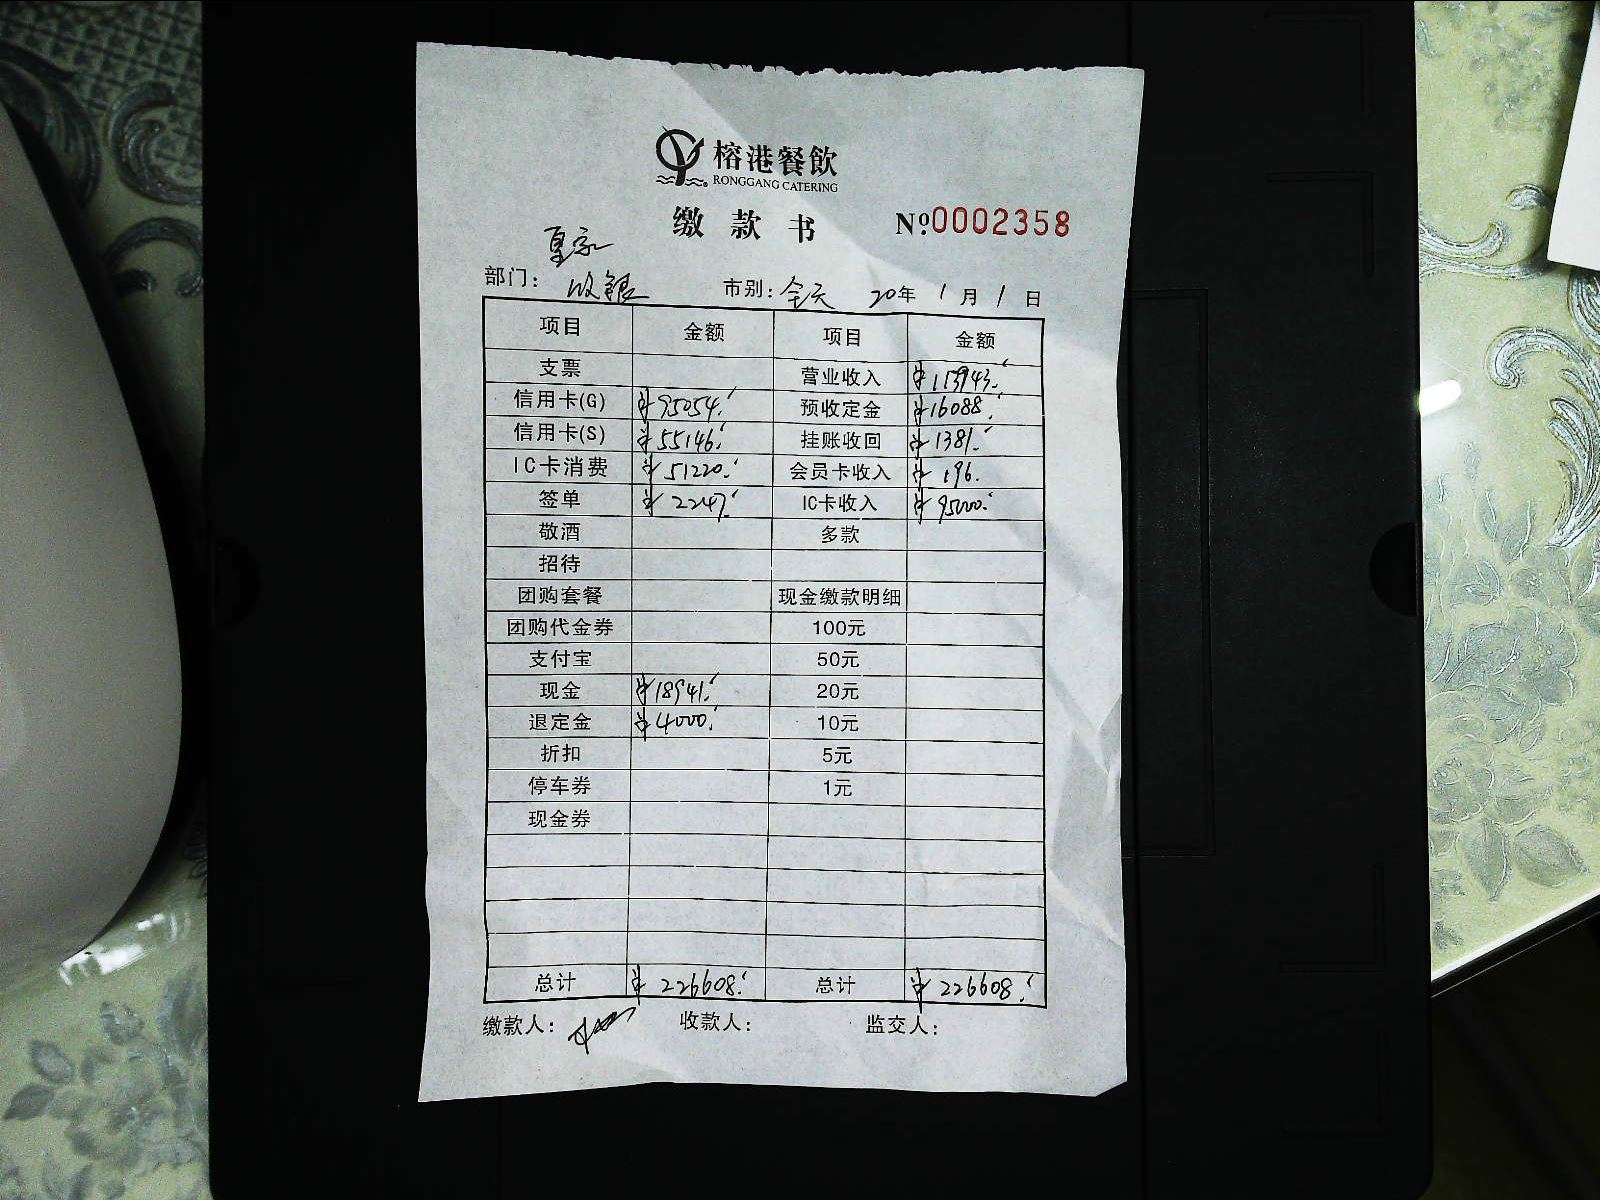 榕港餐飲
RONGGANG CATERING
缴款书 Nº:0002358
皇家
部门: 收银 市别: 全天 20年 1月 1日
项目 金额 项目 金额
支票 营业收入 ¥113943.-
信用卡(G) ¥95054.- 预收定金 ¥16088.-
信用卡(S) ¥55146.- 挂账收回 ¥1381.-
IC卡消费 ¥51220.- 会员卡收入 ¥196.
签单 ¥2247.- IC卡收入 ¥95000.-
敬酒 多款
招待
团购套餐 现金缴款明细
团购代金券 100元
支付宝 50元
现金 ¥18941.- 20元
退定金 ¥4000.- 10元
折扣 5元
停车券 1元
现金券
总计 ¥226608.- 总计 ¥226608.-
缴款人: 收款人: 监交人: